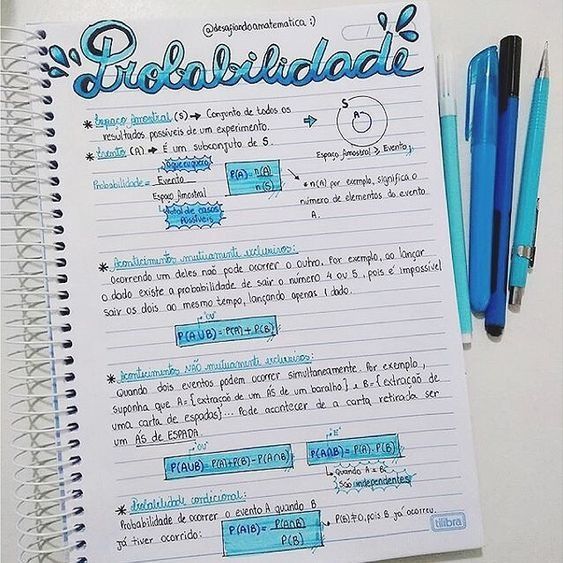 @desafiandoamatematica :)
Probabilidade
* Espaço Amostral (S) → Conjunto de todos os
resultados possíveis de um experimento.
S
A
Espaço Amostral > Evento
* Evento (A) → É um subconjuto de S.
O que eu quero
Probabilidade = Evento
Espaço Amostral
total de casos
Possíveis
P(A) = n(A)
n(S)
* n(A) por exemplo, significa o
número de elementos do evento
A.
* Acontecimentos mutuamente exclusivos:
Ocorrendo um deles naõ pode ocorrer o outro. Por exemplo, ao lançar
o dado existe a probabilidade de sair o numero 4 ou 5, pois é impossível
sair os dois ao mesmo tempo, lançando apenas 1 dado.
"ou"
P(A∪B) = P(A) + P(B)
* Acontecimentos NÃO mutuamente exclusivos:
Quando dois eventos podem ocorrer simultaneamente. Por exemplo,
suponha que A = {extraçaõ de um ÁS de um baralho} e B = {extraçaõ de
uma carta de espadas}... Pode acontecer de a carta retirada ser
um ÁS de ESPADA.
"ou"
P(A∪B) = P(A)+P(B) - P(A∩B)
"e"
P(A∩B) = P(A) . P(B)
Quando A e B
Saõ independentes
* Probabilidade condicional:
Probabilidade de ocorrer o evento A quando B
já tiver ocorrido:
P(A|B) = P(A∩B)
P(B)
P(B)≠0, pois B já ocorreu.
tilibra